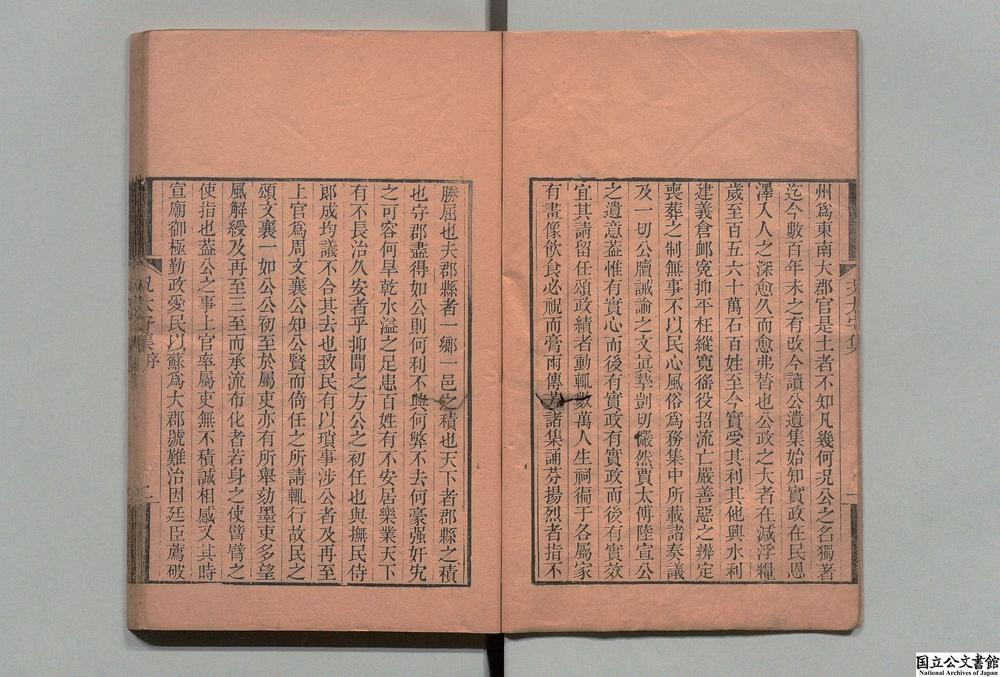 州為東南大郡官是土者不知凡幾何況公之名獨著
迄今數百年未之有改今讀公遺集始知實政在民恩
澤入人之深愈久而愈弗替也公政之大者在減浮糧
歲至百五六十萬石百姓至今實受其利其他興水利
建義倉䘏寃抑平枉縱寬徭役招流亡嚴善惡之辨定
喪葬之制無事不以民心風俗為務集中所載諸奏議
及一切公牘誡諭之文眞摯剴切儼然賈太傅陸宣公
之遺意葢惟有實心而後有實政有實政而後有實效
宜其請留任頌政績者動輒數萬人生祠徧于各屬家
有畫像飲食必祝而膏雨傳為諸集誦芬揚烈者指不
勝屈也夫郡縣者一鄉一邑之積也天下者郡縣之積
也守郡盡得如公則何利不興何弊不去何豪强奸宄
之可容何旱乾水溢之足患百姓有不安居樂業天下
有不長治久安者乎抑聞之方公之初任也與撫民侍
郎成均議不合其去也致民有以瑣事涉公者及再至
上官為周文襄公知公賢而倚任之所請輒行故民之
頌文襄一如公公初至於屬吏亦有所舉劾墨吏多望
風解綬及再至三至而承流布化者若身之使臂臂之
使指也葢公之事上官率屬吏無不積誠相感又其時
宣廟御極勤政愛民以蘇為大郡號難治因廷臣薦破
況太守集
一
況太守集
序
二
国立公文書館
National Archives of Japan